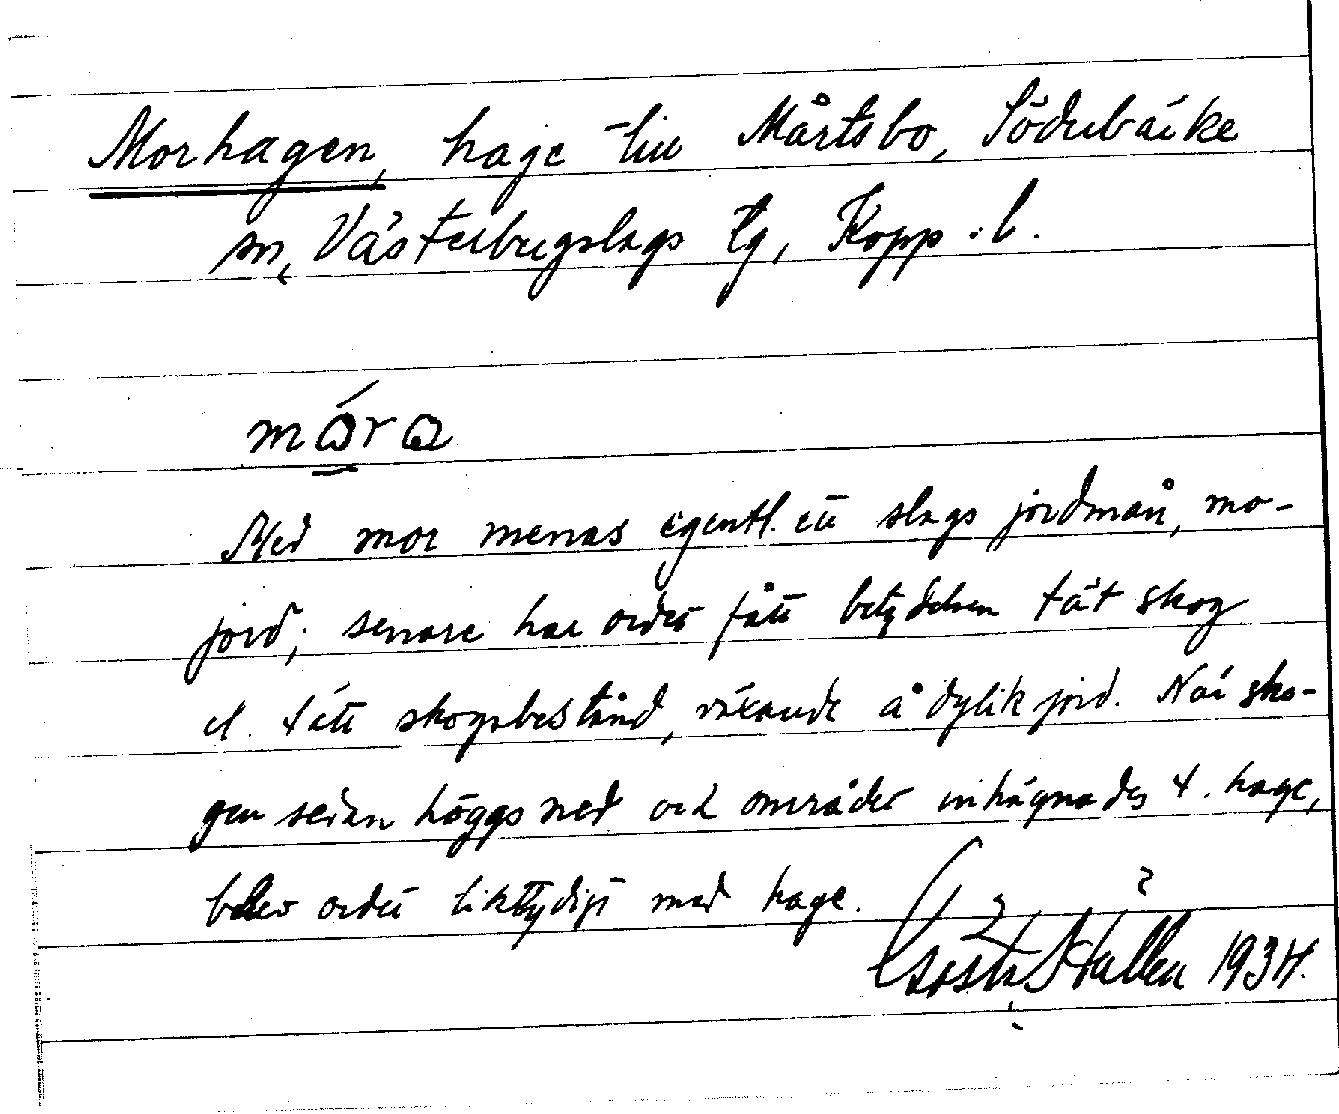 Morhagen, hage till Mårtsbo, Söderbärke
sn, Västerbergslags tg, Kopp. l.
mǻra
Med mor menas egentl. ett slags jordmån, mo-
jord; senare har ordet fått betydelsen tät skog
el. tätt skogsbestånd, växande å dylik jord. När sko-
gen sedan höggs ned och området inhägnades t. hage,
blev ordet liktydigt med hage.
Gösta Hallén 1934.